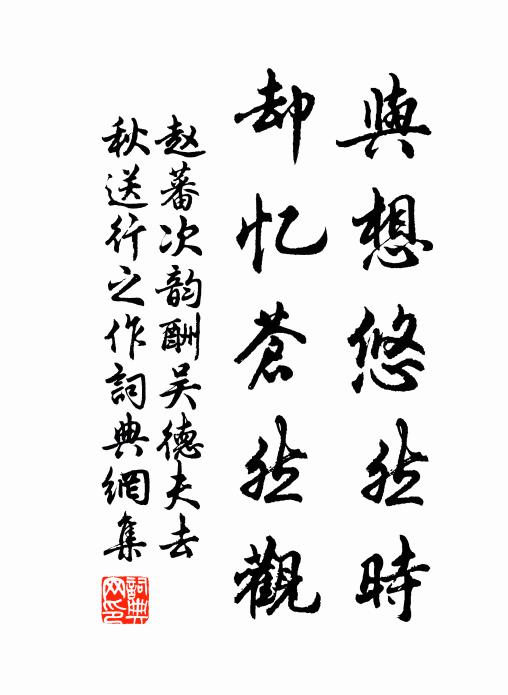 與想悠然時
却忆蒼然觀
赵蕃次韵酬吴德夫去
秋送行之作詞典網集
詞典网印